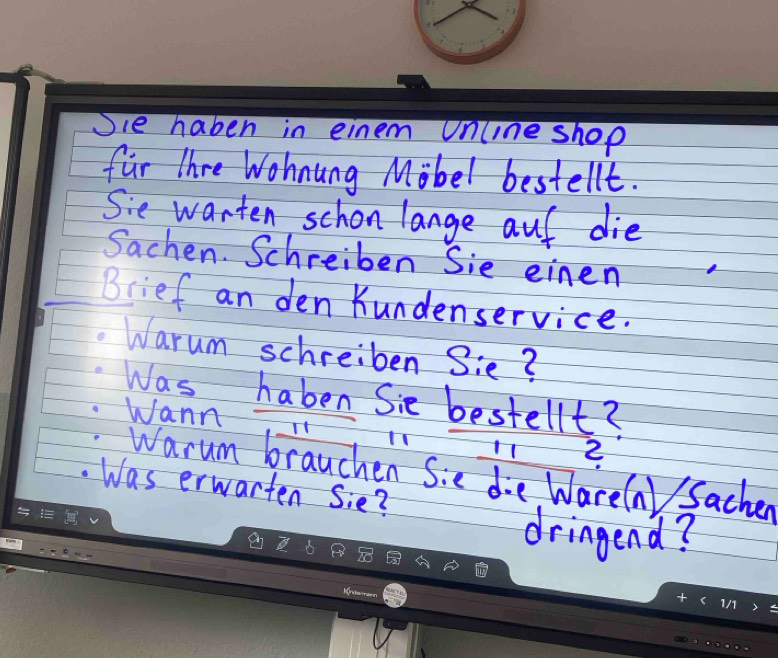 Sie haben in einem Onlineshop
für Ihre Wohnung Möbel bestellt.
Sie warten schon lange auf die
Sachen. Schreiben Sie einen
Brief an den Kundenservice.
• Warum schreiben Sie?
• Was haben Sie bestellt?
• Wann " " " ?
• Warum brauchen Sie die Ware(n)/Sachen
dringend?
• Was erwarten Sie?
Kindermann
1/1